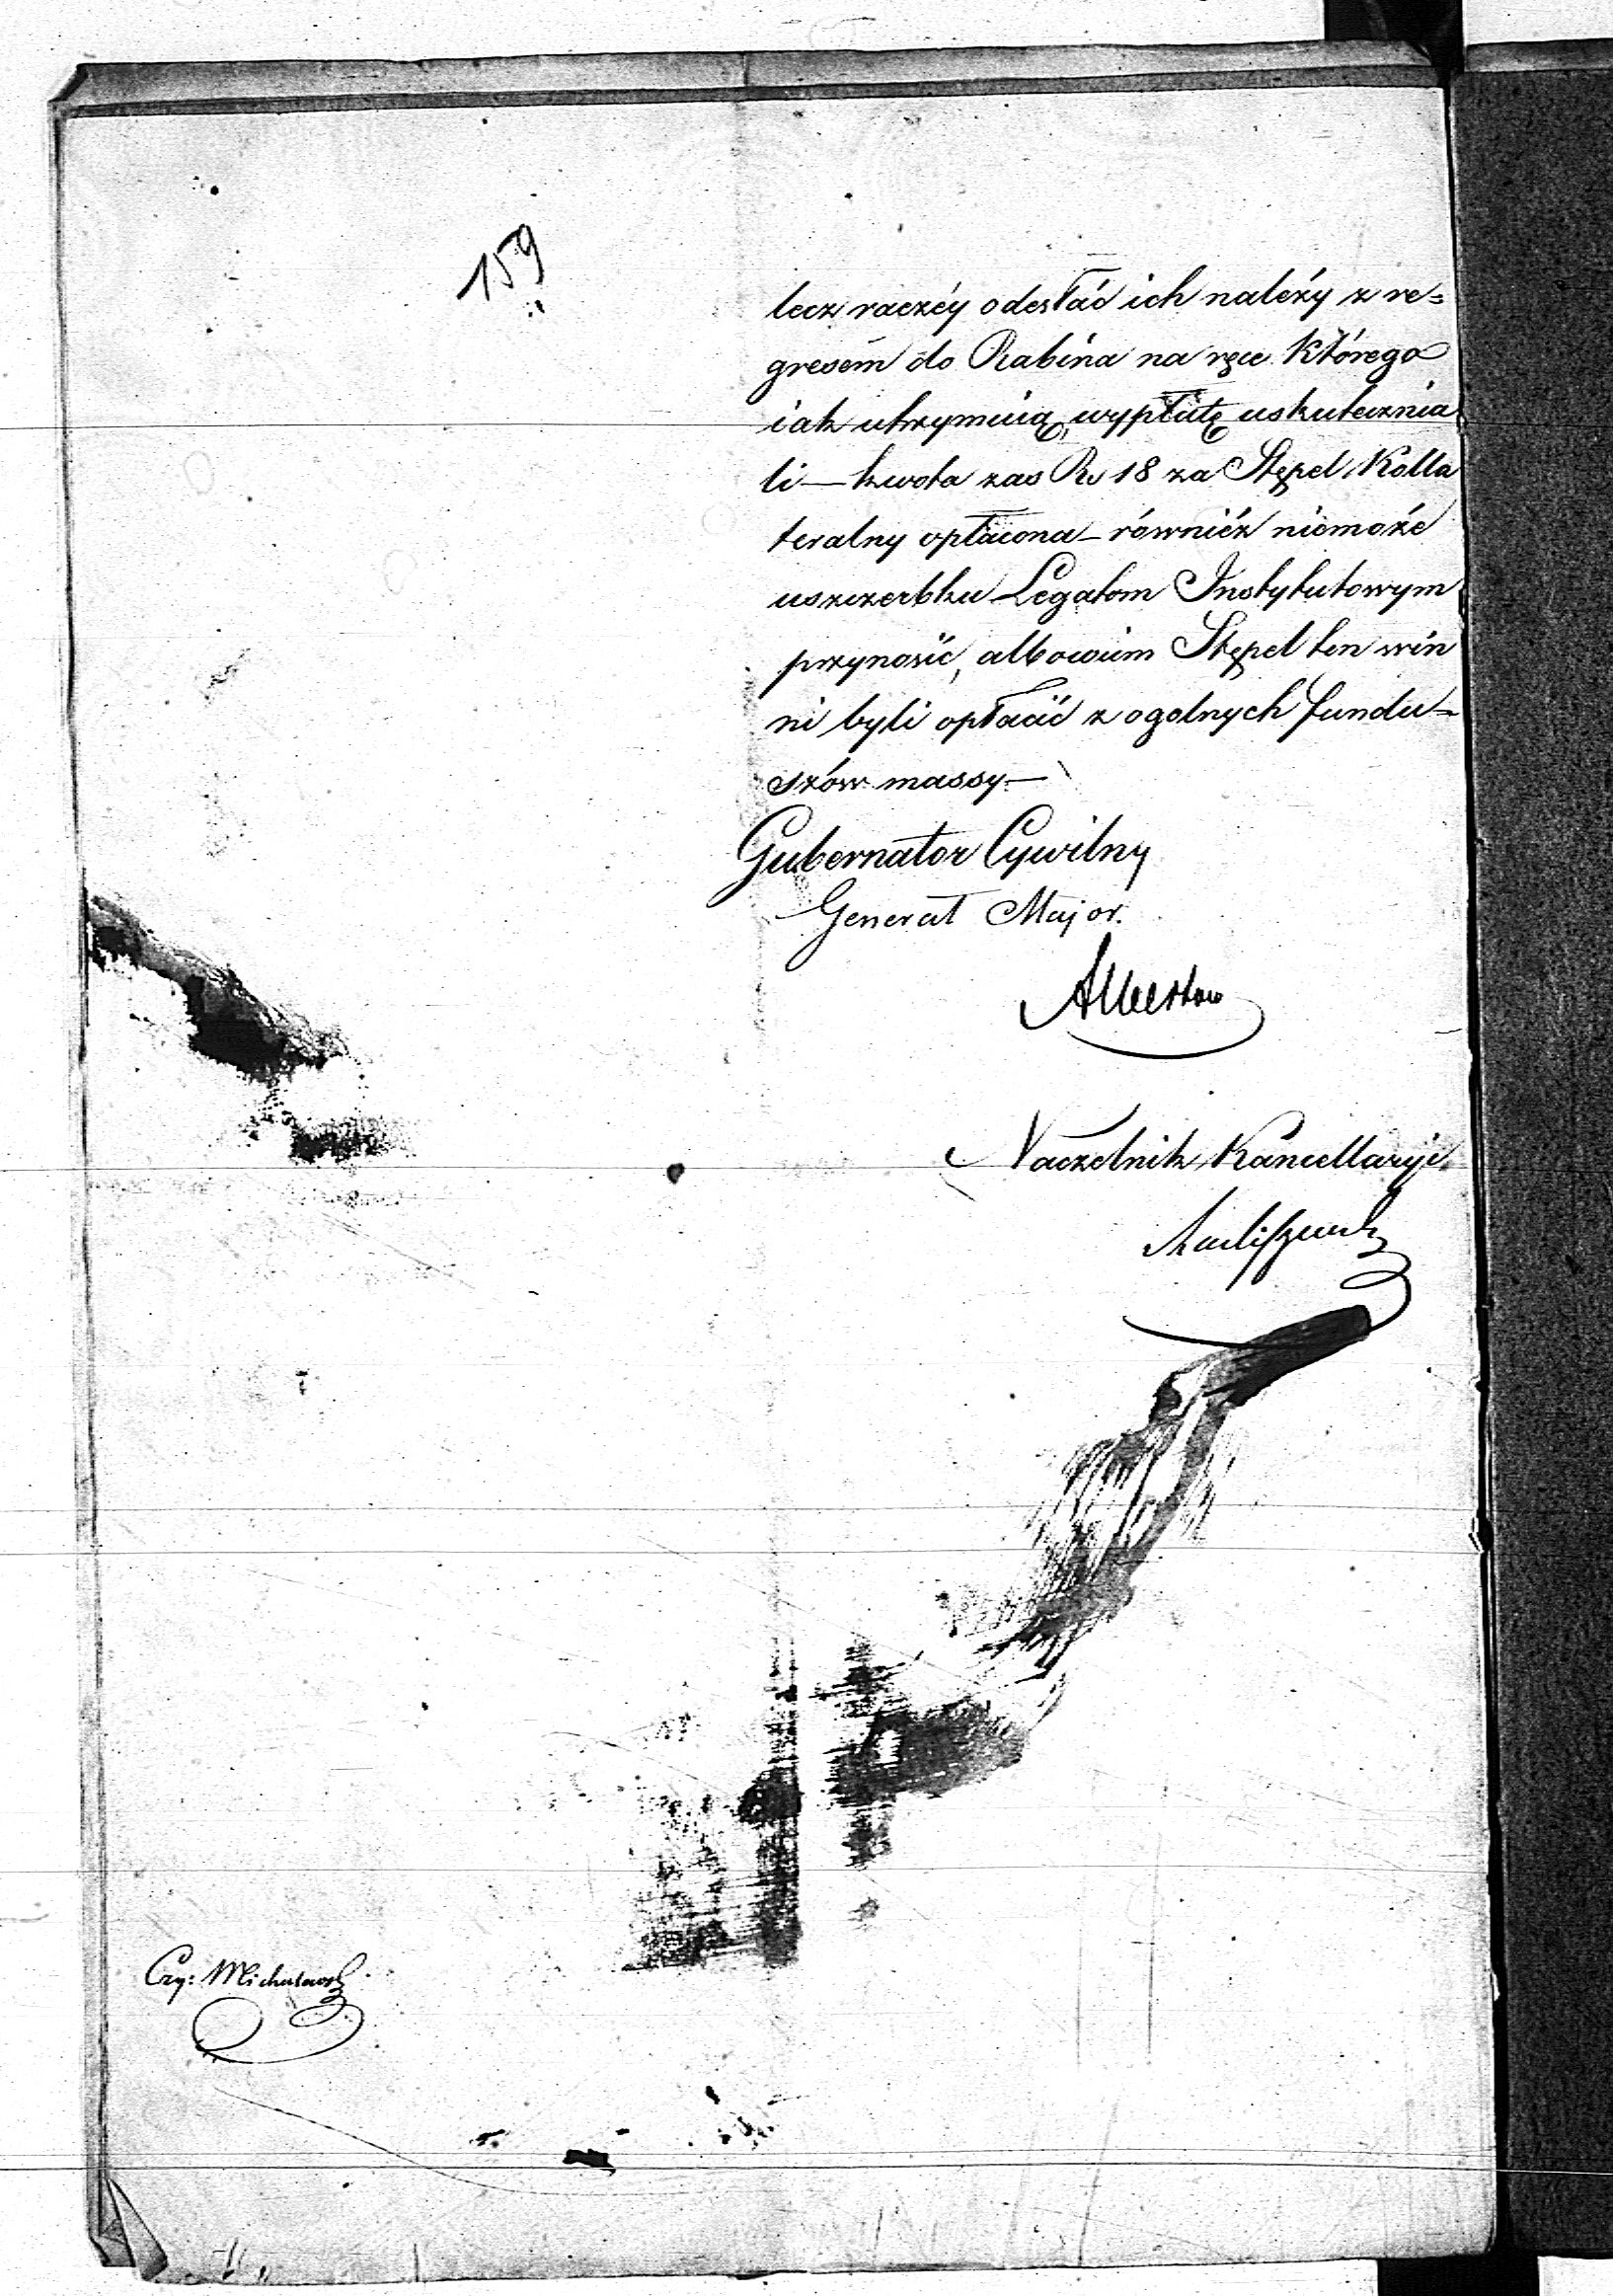 159
lecz raczéy odesłać ich należy z re=
gresem do Rabina na ręce którego
iak utrzymuią, wypłatę uskutecznia
li — kwota zas Rs 18 za Stępel Kolla
teralny opłacona — również niemoże
uszczerbku Legatom Instytutowym
przynosić, albowiem Stępel ten win
ni byli opłacić z ogolnych fundu=
szów massy —
Gubernator Cywilny
Generał Major.
Naczelnik Kancellaryi
Czy: